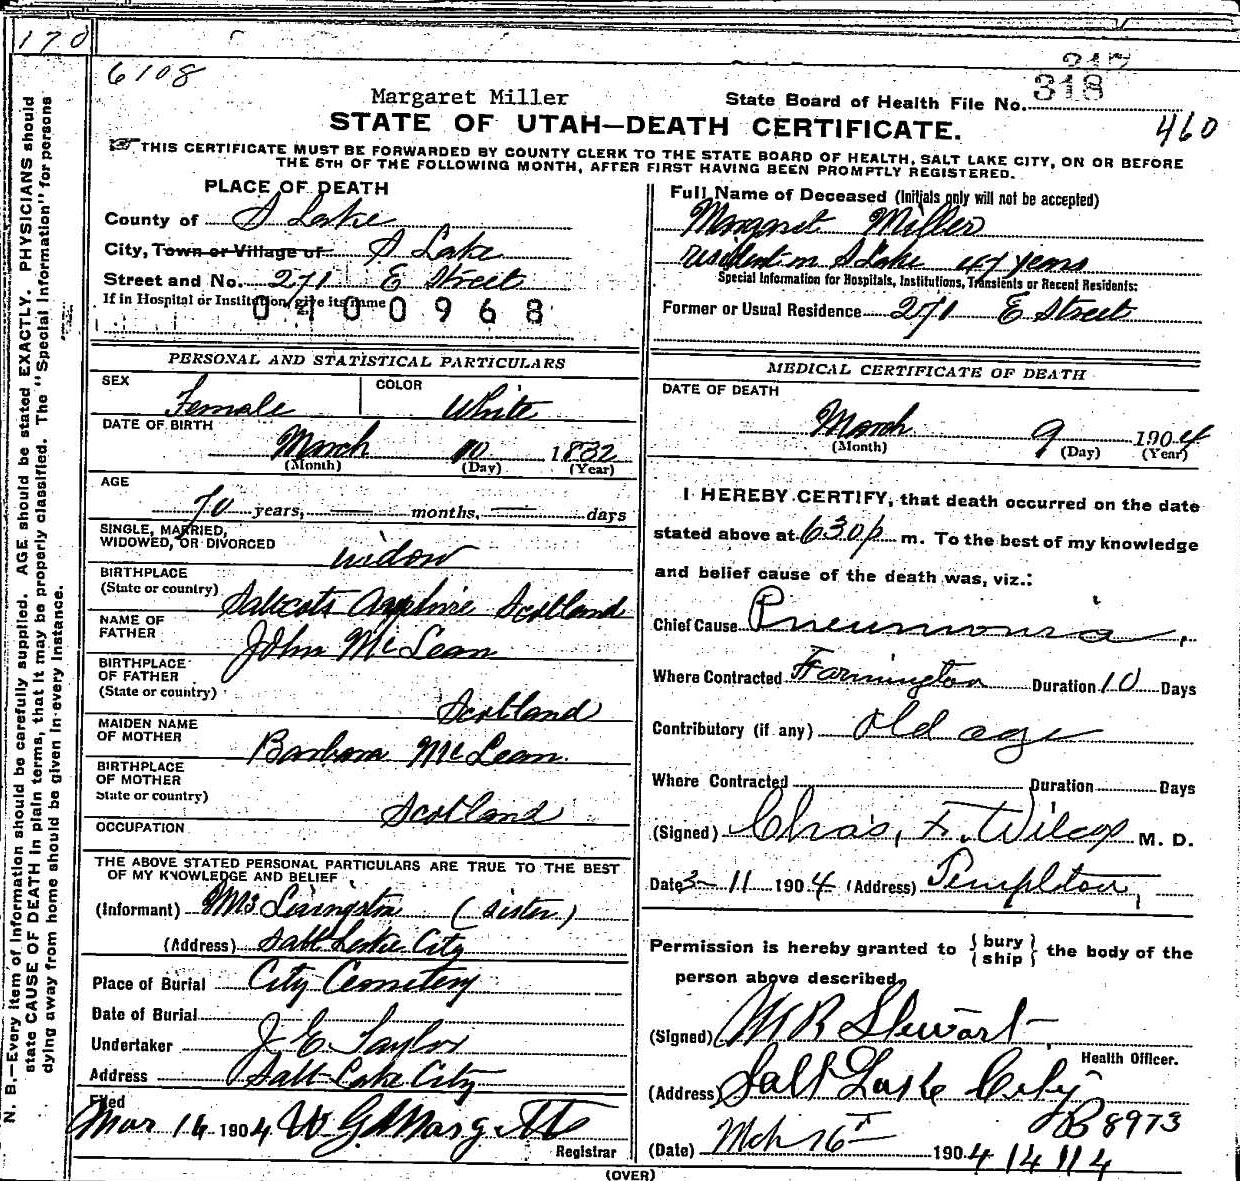 170
6108
317
Margaret Miller
State Board of Health File No. 318
STATE OF UTAH—DEATH CERTIFICATE.
460
☞THIS CERTIFICATE MUST BE FORWARDED BY COUNTY CLERK TO THE STATE BOARD OF HEALTH, SALT LAKE CITY, ON OR BEFORE
THE 5TH OF THE FOLLOWING MONTH, AFTER FIRST HAVING BEEN PROMPTLY REGISTERED.
PLACE OF DEATH
County of S Lake
City, Town or Village of S Lake
Street and No. 271 E Street
If in Hospital or Institution, give its name
0400968
Full Name of Deceased (Initials only will not be accepted)
Margaret Miller
resident in S Lake 47 years
Special Information for Hospitals, Institutions, Transients or Recent Residents:
Former or Usual Residence 271 E Street
PERSONAL AND STATISTICAL PARTICULARS
SEX Female
COLOR White
DATE OF BIRTH
March 10 1832
(Month) (Day) (Year)
AGE
70 years, — months, — days
SINGLE, MARRIED,
WIDOWED, OR DIVORCED widow
BIRTHPLACE
(State or country) Saltcots Ayrshire Scotland
NAME OF
FATHER John McLean
BIRTHPLACE
OF FATHER
(State or country) Scotland
MAIDEN NAME
OF MOTHER Barbara McLean
BIRTHPLACE
OF MOTHER
State or country) Scotland
OCCUPATION
THE ABOVE STATED PERSONAL PARTICULARS ARE TRUE TO THE BEST
OF MY KNOWLEDGE AND BELIEF
(Informant) Mrs Livingston (sister)
(Address) Salt Lake City
Place of Burial City Cemetery
Date of Burial
Undertaker J E Taylor
Address Salt Lake City
Filed
Mar 16 1904 W G Margetts
Registrar
MEDICAL CERTIFICATE OF DEATH
DATE OF DEATH
March 9 1904
(Month) (Day) (Year)
I HEREBY CERTIFY, that death occurred on the date
stated above at 630 p m. To the best of my knowledge
and belief cause of the death was, viz.:
Chief Cause Pneumonia,
Where Contracted Farmington Duration 10 Days
Contributory (if any) old age
Where Contracted Duration Days
(Signed) Chas. F. Wilcox M. D.
Date 3-11 1904 (Address) Templeton,
Permission is hereby granted to {bury
ship} the body of the
person above described,
(Signed) M R Stewart
Health Officer.
(Address) Salt Lake City
B8973
(Date) Mch 16 1904
14114
(OVER)
N. B.—Every item of information should be carefully supplied. AGE should be stated EXACTLY. PHYSICIANS should
state CAUSE OF DEATH in plain terms, that it may be properly classified. The "Special Information" for persons
dying away from home should be given in every instance.